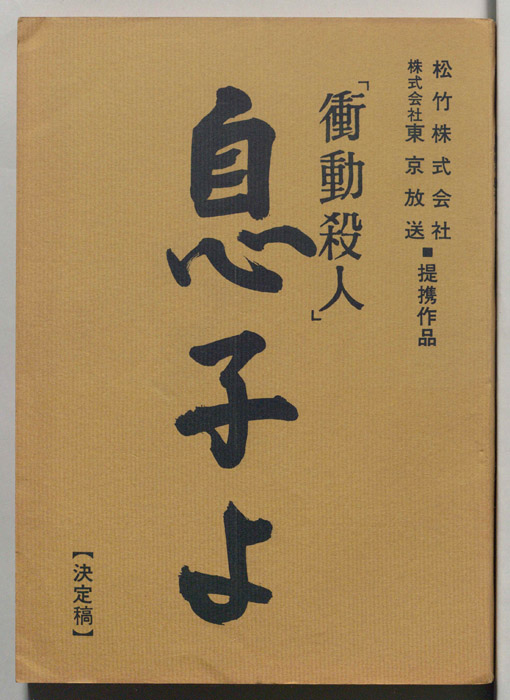 松竹株式会社
株式会社東京放送
■提携作品
「衝動殺人」
息子よ
【決定稿】